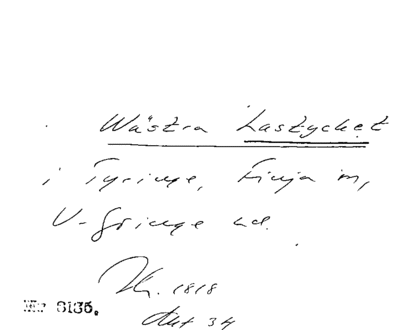 Wästra Lastycket
i Tyringe, Finja m,
V-Göinge hd.
1818
Akt 34
8135.